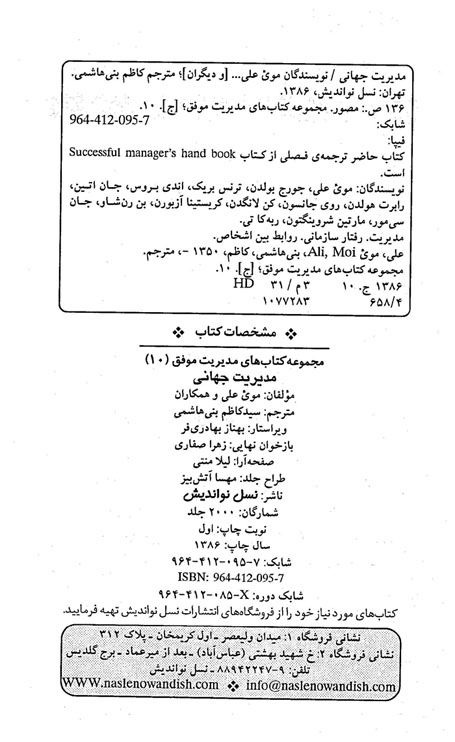 مدیریت جهانی / نویسندگان موئ علی... [و دیگران]؛ مترجم کاظم بنی‌هاشمی.
تهران: نسل نواندیش، ۱۳۸۶.
۱۳۶ ص.: مصور. مجموعه کتاب‌های مدیریت موفق؛ [ج]. ۱۰.
شابک: 964-412-095-7
فیپا:
کتاب حاضر ترجمه‌ی فصلی از کتاب Successful manager's hand book
است.
نویسندگان: موئ علی، جورج بولدن، ترنس بریک، اندی بروس، جان اتین،
رابرت هولدن، روی جانسون، کن لانگدن، کریستینا آزبورن، بن رن‌شاو، جان
سی‌مور، مارتین شروینگتون، ربه‌کا تی.
مدیریت. رفتار سازمانی. روابط بین اشخاص.
علی، موئ Ali, Moi، بنی‌هاشمی، کاظم، ۱۳۵۰ -، مترجم.
مجموعه کتاب‌های مدیریت موفق؛ [ج]. ۱۰.
۱۳۸۶ ج. ۱۰ ۳م / ۳۱ HD
۶۵۸/۴ ۱۰۷۷۲۸۳
مشخصات کتاب
مجموعه کتاب‌های مدیریت موفق (۱۰)
مدیریت جهانی
مؤلفان: موئ علی و همکاران
مترجم: سیدکاظم بنی‌هاشمی
ویراستار: بهناز بهادری‌فر
بازخوان نهایی: زهرا صفاری
صفحه‌آرا: لیلا منتی
طراح جلد: مهسا آتش‌بیز
ناشر: نسل نواندیش
شمارگان: ۲۰۰۰ جلد
نوبت چاپ: اول
سال چاپ: ۱۳۸۶
شابک: ۷-۰۹۵-۴۱۲-۹۶۴
ISBN: 964-412-095-7
شابک دوره: X-۰۸۵-۴۱۲-۹۶۴
کتاب‌های مورد نیاز خود را از فروشگاه‌های انتشارات نسل نواندیش تهیه فرمایید.
نشانی فروشگاه ۱: میدان ولیعصر ـ اول کریمخان ـ پلاک ۳۱۲
نشانی فروشگاه ۲: خ شهید بهشتی (عباس‌آباد) ـ بعد از میرعماد ـ برج گلدیس
تلفن: ۹-۸۸۹۴۲۲۴۷ ـ نسل نواندیش
WWW.naslenowandish.com ❖ info@naslenowandish.com